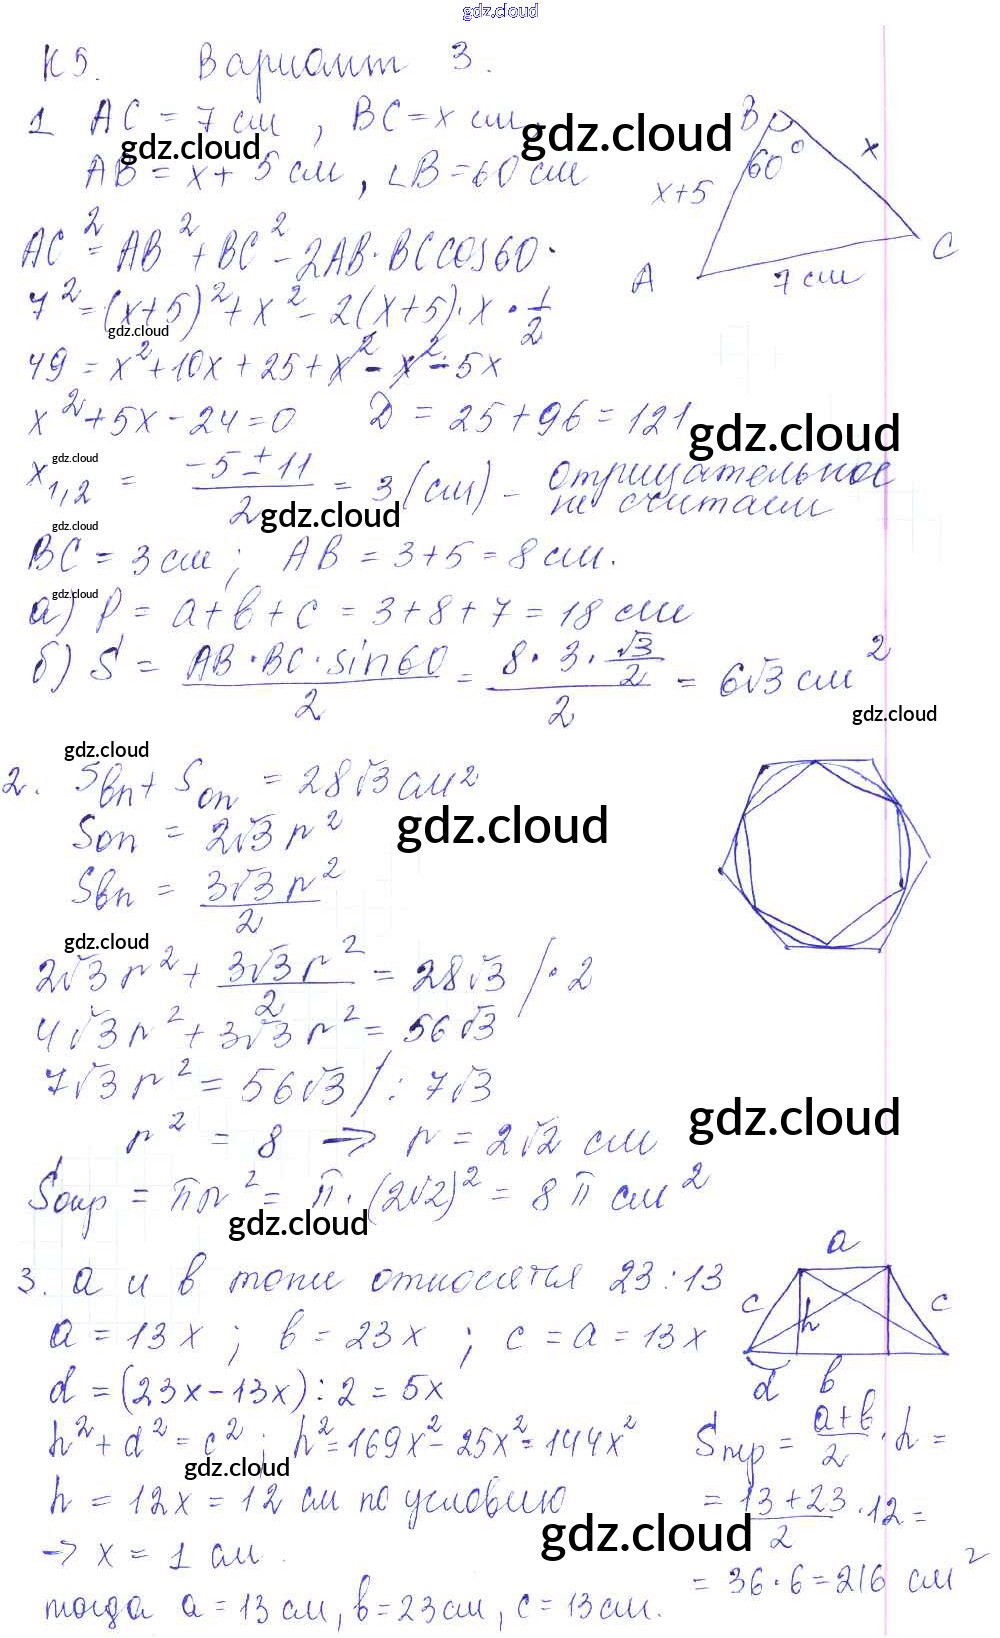 gdz.cloud
К5. Вариант 3.
1 AC = 7 см, BC = x см,
gdz.cloud
gdz.cloud
AB = x + 5 см, ∠B = 60 см
B 60° x
x+5
A 7 см C
AC² = AB² + BC² - 2AB·BC cos60·
7² = (x+5)² + x² - 2(x+5)·x·1/2
gdz.cloud
49 = x² + 10x + 25 + x² - x² - 5x
x² + 5x - 24 = 0 D = 25 + 96 = 121
gdz.cloud
gdz.cloud
x₁,₂ = (-5 ± 11)/2 = 3 (см) - отрицательное
не считаем
gdz.cloud
gdz.cloud
BC = 3 см; AB = 3 + 5 = 8 см.
gdz.cloud
а) P = a + b + c = 3 + 8 + 7 = 18 см
б) S = (AB·BC·sin60)/2 = (8·3·√3/2)/2 = 6√3 см²
gdz.cloud
gdz.cloud
2. Sвп + Sоп = 28√3 см²
Sоп = 2√3 r²
gdz.cloud
Sвп = 3√3 r²/2
gdz.cloud
2√3 r² + 3√3 r²/2 = 28√3 /·2
4√3 r² + 3√3 r² = 56√3
7√3 r² = 56√3 /: 7√3
gdz.cloud
r² = 8 → r = 2√2 см
Sокр = πr² = π·(2√2)² = 8π см²
gdz.cloud
3. a и b топи относятся 23:13
a = 13x; b = 23x; c = a = 13x
a
c h c
d b
d = (23x - 13x) : 2 = 5x
h² + d² = c²; h² = 169x² - 25x² = 144x²
gdz.cloud
Sтр = (a+b)/2 · h =
h = 12x = 12 см по условию
= (13+23)/2 · 12 =
gdz.cloud
→ x = 1 см.
= 36·6 = 216 см²
тогда a = 13 см, b = 23 см, c = 13 см.